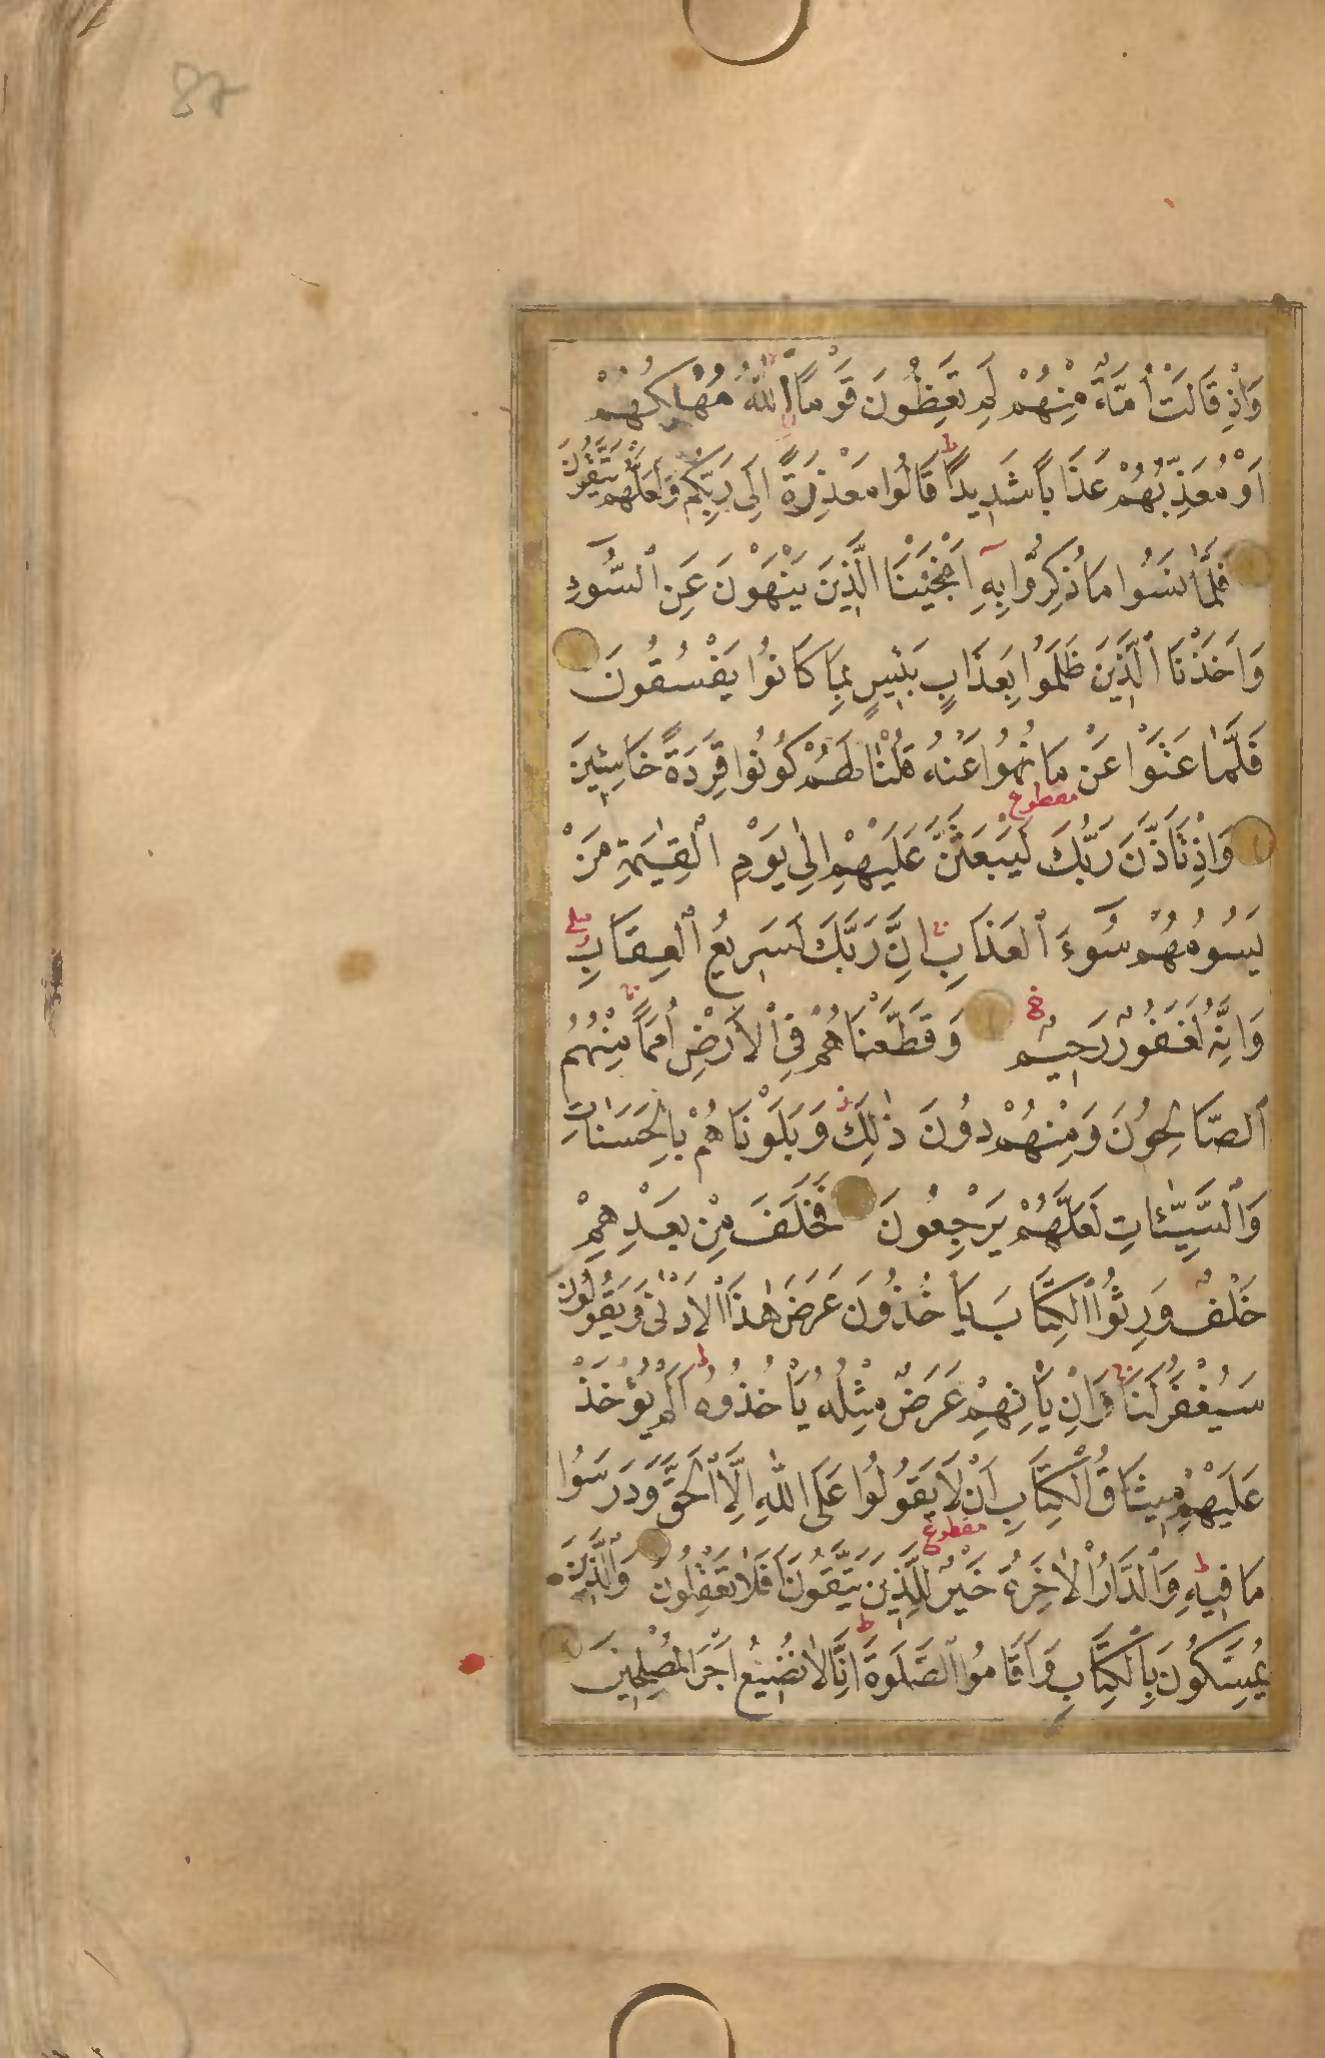 87
وَاِذْ قَالَتْ اُمَّةٌ مِنْهُمْ لِمَ تَعِظُونَ قَوْمًا اللّٰهُ مُهْلِكُهُمْ
اَوْ مُعَذِّبُهُمْ عَذَابًا شَدِيدًا ط قَالُوا مَعْذِرَةً اِلٰى رَبِّكُمْ وَلَعَلَّهُمْ يَتَّقُونَ
فَلَمَّا نَسُوا مَا ذُكِّرُوا بِهِ اَنْجَيْنَا الَّذِينَ يَنْهَوْنَ عَنِ السُّوءِ
وَاَخَذْنَا الَّذِينَ ظَلَمُوا بِعَذَابٍ بَئِيسٍ بِمَا كَانُوا يَفْسُقُونَ
فَلَمَّا عَتَوْا عَنْ مَا نُهُوا عَنْهُ قُلْنَا لَهُمْ كُونُوا قِرَدَةً خَاسِئِينَ
مقطوع
وَاِذْ تَاَذَّنَ رَبُّكَ لَيَبْعَثَنَّ عَلَيْهِمْ اِلٰى يَوْمِ الْقِيٰمَةِ مَنْ
يَسُومُهُمْ سُوءَ الْعَذَابِ اِنَّ رَبَّكَ لَسَرِيعُ الْعِقَابِ
وَاِنَّهُ لَغَفُورٌ رَحِيمٌ وَقَطَّعْنَاهُمْ فِي الْاَرْضِ اُمَمًا مِنْهُمُ
الصَّالِحُونَ وَمِنْهُمْ دُونَ ذٰلِكَ وَبَلَوْنَاهُمْ بِالْحَسَنَاتِ
وَالسَّيِّئَاتِ لَعَلَّهُمْ يَرْجِعُونَ فَخَلَفَ مِنْ بَعْدِهِمْ
خَلْفٌ وَرِثُوا الْكِتَابَ يَاْخُذُونَ عَرَضَ هٰذَا الْاَدْنٰى وَيَقُولُونَ
سَيُغْفَرُ لَنَا وَاِنْ يَاْتِهِمْ عَرَضٌ مِثْلُهُ يَاْخُذُوهُ ط اَلَمْ يُؤْخَذْ
عَلَيْهِمْ مِيثَاقُ الْكِتَابِ اَنْ لَا يَقُولُوا عَلَى اللّٰهِ اِلَّا الْحَقَّ وَدَرَسُوا
مقطوع
مَا فِيهِ ط وَالدَّارُ الْاٰخِرَةُ خَيْرٌ لِلَّذِينَ يَتَّقُونَ اَفَلَا تَعْقِلُونَ وَالَّذِينَ
يُمَسِّكُونَ بِالْكِتَابِ وَاَقَامُوا الصَّلٰوةَ ط اِنَّا لَا نُضِيعُ اَجْرَ الْمُصْلِحِينَ